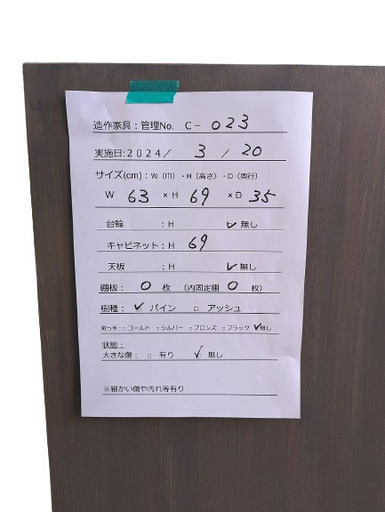 造作家具：管理No. C-023
実施日:2024／ 3 ／ 20
サイズ(cm)：W（巾）・H（高さ）・D（奥行）
W 63 ×H 69 ×D 35
台輪 ：H ✓無し
キャビネット：H 69
天板 ：H ✓無し
棚板： 0 枚 （内固定棚 0 枚）
樹種： ✓ パイン □ アッシュ
取っ手：□ゴールド □シルバー □ブロンズ □ブラック ✓無し
状態：
大きな傷： □ 有り ✓ 無し
※細かい傷や汚れ等有り